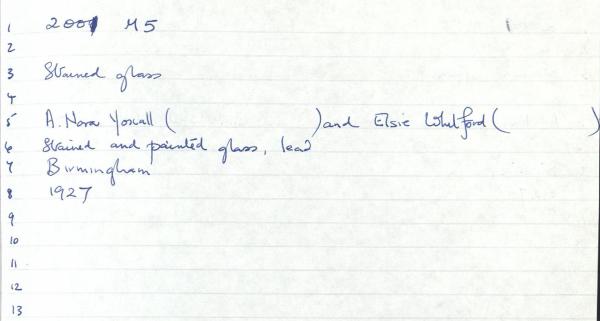 1 2001 M5
2
3 Stained glass
4
5 A. Nora Yoxall ( ) and Elsie Whitford ( )
6 Stained and painted glass, lead
7 Birmingham
8 1927
9
10
11
12
13